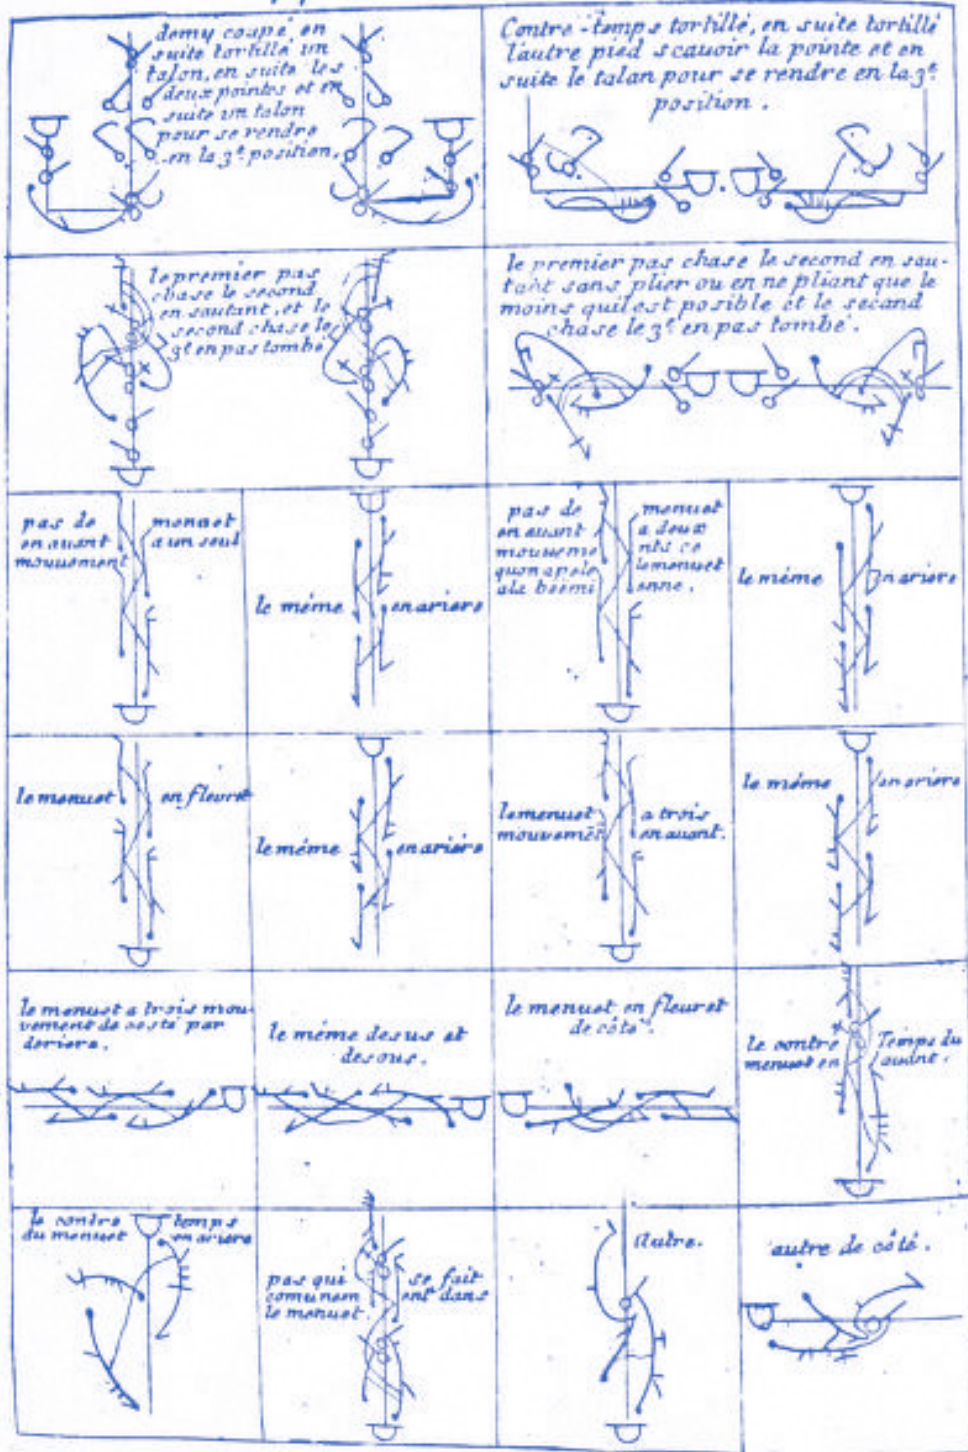 demy coupé, en
suite tortillé un
talon, en suite les
deux pointes et en
suite un talon
pour se rendre
en la 3e position.
Contre-temps tortillé, en suite tortillé
l'autre pied scauoir la pointe et en
suite le talan pour se rendre en la 3e
position.
le premier pas
chase le second
en sautant, et le
second chase le
3e en pas tombé
le premier pas chase le second en sau-
tant sans plier ou en ne pliant que le
moins quil est posible et le second
chase le 3e en pas tombé.
pas de menuet
en auant a un seul
mouuement
le méme en ariere
pas de menuet
en auant a deux
mouueme nts ce
quon apele le menuet
a la boemi enne.
le méme en ariere
le menuet en fleuret
le méme en ariére
le menuet a trois
mouvemẽs en auant.
le méme en ariere
le menuet a trois mou-
vement de costé par
deriere.
le méme desus et
desous.
le menuet en fleuret
de côté.
le contre Temps du
menuet en auant.
le contre temps
du menuet en ariere
pas qui se fait
comunem ent dans
le menuet.
Autre.
autre de côté.